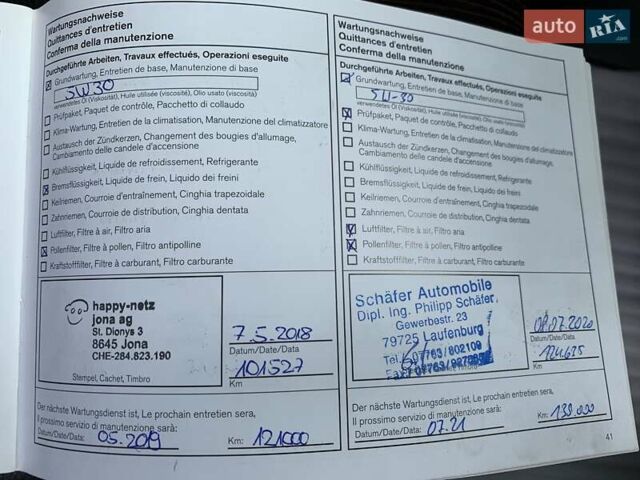 auto RIA.com
Wartungsnachweise
Quittances d'entretien
Conferma della manutenzione
Durchgeführte Arbeiten, Travaux effectués, Operazioni eseguite
Grundwartung, Entretien de base, Manutenzione di base
5W30
verwendetes Öl (Viskosität), Huile utilisée (viscosité), Olio usato (viscosità)
Prüfpaket, Paquet de contrôle, Pacchetto di collaudo
Klima-Wartung, Entretien de la climatisation, Manutenzione del climatizzatore
Austausch der Zündkerzen, Changement des bougies d'allumage,
Cambiamento delle candele d'accensione
Kühlflüssigkeit, Liquide de refroidissement, Refrigerante
Bremsflüssigkeit, Liquide de frein, Liquido dei freini
Keilriemen, Courroie d'entraînement, Cinghia trapezoidale
Zahnriemen, Courroie de distribution, Cinghia dentata
Luftfilter, Filtre à air, Filtro aria
Pollenfilter, Filtre à pollen, Filtro antipolline
Kraftstofffilter, Filtre à carburant, Filtro carburante
happy-netz
jona ag
St. Dionys 3
8645 Jona
CHE-284.823.190
Stempel, Cachet, Timbro
7.5.2018
Datum/Date/Data
101527
Km
Der nächste Wartungsdienst ist, Le prochain entretien sera,
Il prossimo servizio di manutenzione sarà:
Datum/Date/Data: 05.2019 Km: 121000
Wartungsnachweise
Quittances d'entretien
Conferma della manutenzione
Durchgeführte Arbeiten, Travaux effectués, Operazioni eseguite
Grundwartung, Entretien de base, Manutenzione di base
5W-30
verwendetes Öl (Viskosität), Huile utilisée (viscosité), Olio usato (viscosità)
Prüfpaket, Paquet de contrôle, Pacchetto di collaudo
Klima-Wartung, Entretien de la climatisation, Manutenzione del climatizzatore
Austausch der Zündkerzen, Changement des bougies d'allumage,
Cambiamento delle candele d'accensione
Kühlflüssigkeit, Liquide de refroidissement, Refrigerante
Bremsflüssigkeit, Liquide de frein, Liquido dei freini
Keilriemen, Courroie d'entraînement, Cinghia trapezoidale
Zahnriemen, Courroie de distribution, Cinghia dentata
Luftfilter, Filtre à air, Filtro aria
Pollenfilter, Filtre à pollen, Filtro antipolline
Kraftstofffilter, Filtre à carburant, Filtro carburante
Schäfer Automobile
Dipl. Ing. Philipp Schäfer
Gewerbestr. 23
79725 Laufenburg
Tel. 07763/802109
Fax
.07.2020
Datum/Date/Data
124625
Km
Der nächste Wartungsdienst ist, Le prochain entretien sera,
Il prossimo servizio di manutenzione sarà:
Datum/Date/Data: 07.21 Km: 139000
41